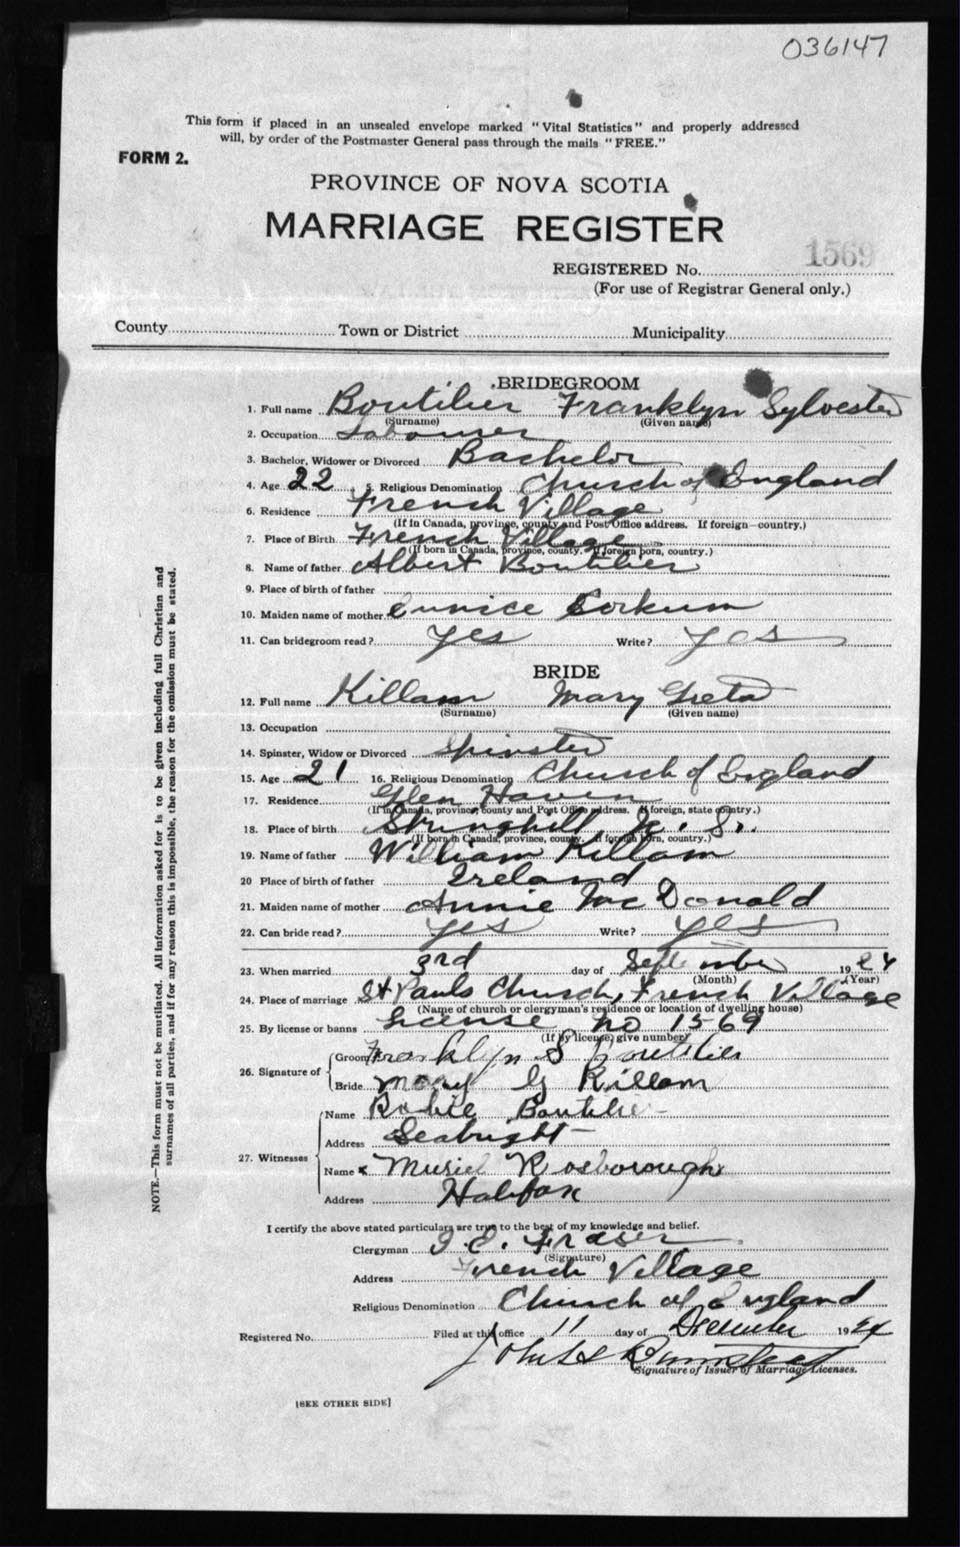 036147
This form if placed in an unsealed envelope marked "Vital Statistics" and properly addressed
will, by order of the Postmaster General pass through the mails "FREE."
FORM 2.
PROVINCE OF NOVA SCOTIA
MARRIAGE REGISTER
REGISTERED No. 1569
(For use of Registrar General only.)
County Town or District Municipality
BRIDEGROOM
1. Full name Boutilier Franklyn Sylvester
(Surname) (Given name)
2. Occupation Labourer
3. Bachelor, Widower or Divorced Bachelor
4. Age 22 5. Religious Denomination Church of England
6. Residence French Village
(If in Canada, province, county and Post Office address. If foreign—country.)
7. Place of Birth French Village
(If born in Canada, province, county. If foreign born, country.)
8. Name of father Albert Boutilier
9. Place of birth of father
10. Maiden name of mother Eunice Corkum
11. Can bridegroom read? yes Write? yes
BRIDE
12. Full name Killam Mary Greta
(Surname) (Given name)
13. Occupation
14. Spinster, Widow or Divorced Spinster
15. Age 21 16. Religious Denomination Church of England
17. Residence Glen Haven
(If in Canada, province, county and Post Office address. If foreign, state country.)
18. Place of birth Springhill
(If born in Canada, province, county. If foreign born, country.)
19. Name of father William Killam
20 Place of birth of father Ireland
21. Maiden name of mother Annie Mc Donald
22. Can bride read? yes Write? yes
23. When married 3rd day of September 1924
(Month) (Year)
24. Place of marriage St Pauls Church, French Village
(Name of church or clergyman's residence or location of dwelling house)
25. By license or banns License no 1569
(If by license, give number)
26. Signature of Groom Franklyn S Boutilier
Bride Mary G Killam
27. Witnesses Name Robie Boutilier
Address Seabright
Name Muriel Rosborough
Address Halifax
I certify the above stated particulars are true to the best of my knowledge and belief.
Clergyman J. E. Fraser
(Signature)
Address French Village
Religious Denomination Church of England
Registered No. Filed at this office 11 day of December 1924
Signature of Issuer of Marriage Licenses.
[SEE OTHER SIDE]
NOTE.—This form must not be mutilated. All information asked for is to be given including full Christian and
surnames of all parties, and if for any reason this is impossible, the reason for the omission must be stated.